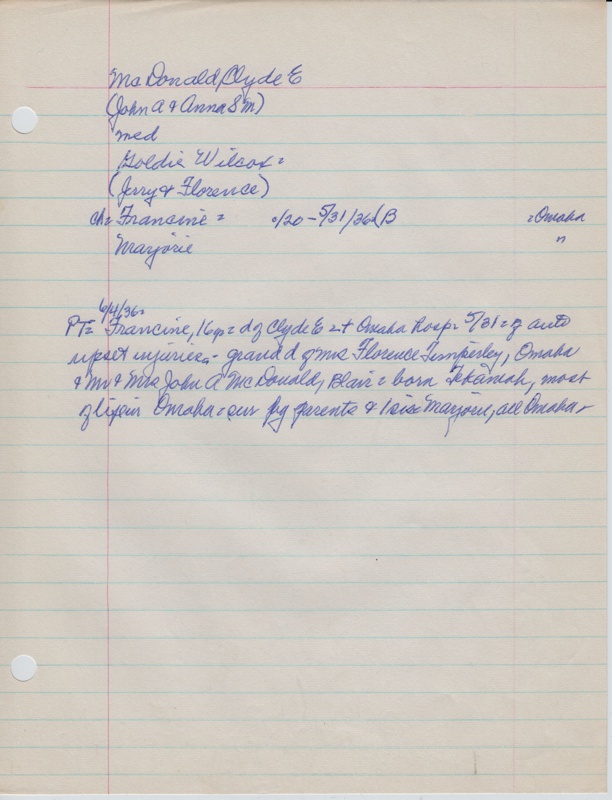 McDonald, Clyde E
(John A & Anna S M)
med
Goldie Wilcox =
(Jerry & Florence)
ch= Francine = c/20 - 5/31/36 (B = Omaha
Marjorie "
6/4/36=
PT= Francine, 16y = d of Clyde E = + Omaha hosp = 5/31 = of auto
upset injuries - grand d of Mrs Florence Timperley, Omaha
& Mr & Mrs John A McDonald, Blair = born Tekamah, most
of life in Omaha = sur by parents & 1 sis Marjorie, all Omaha -